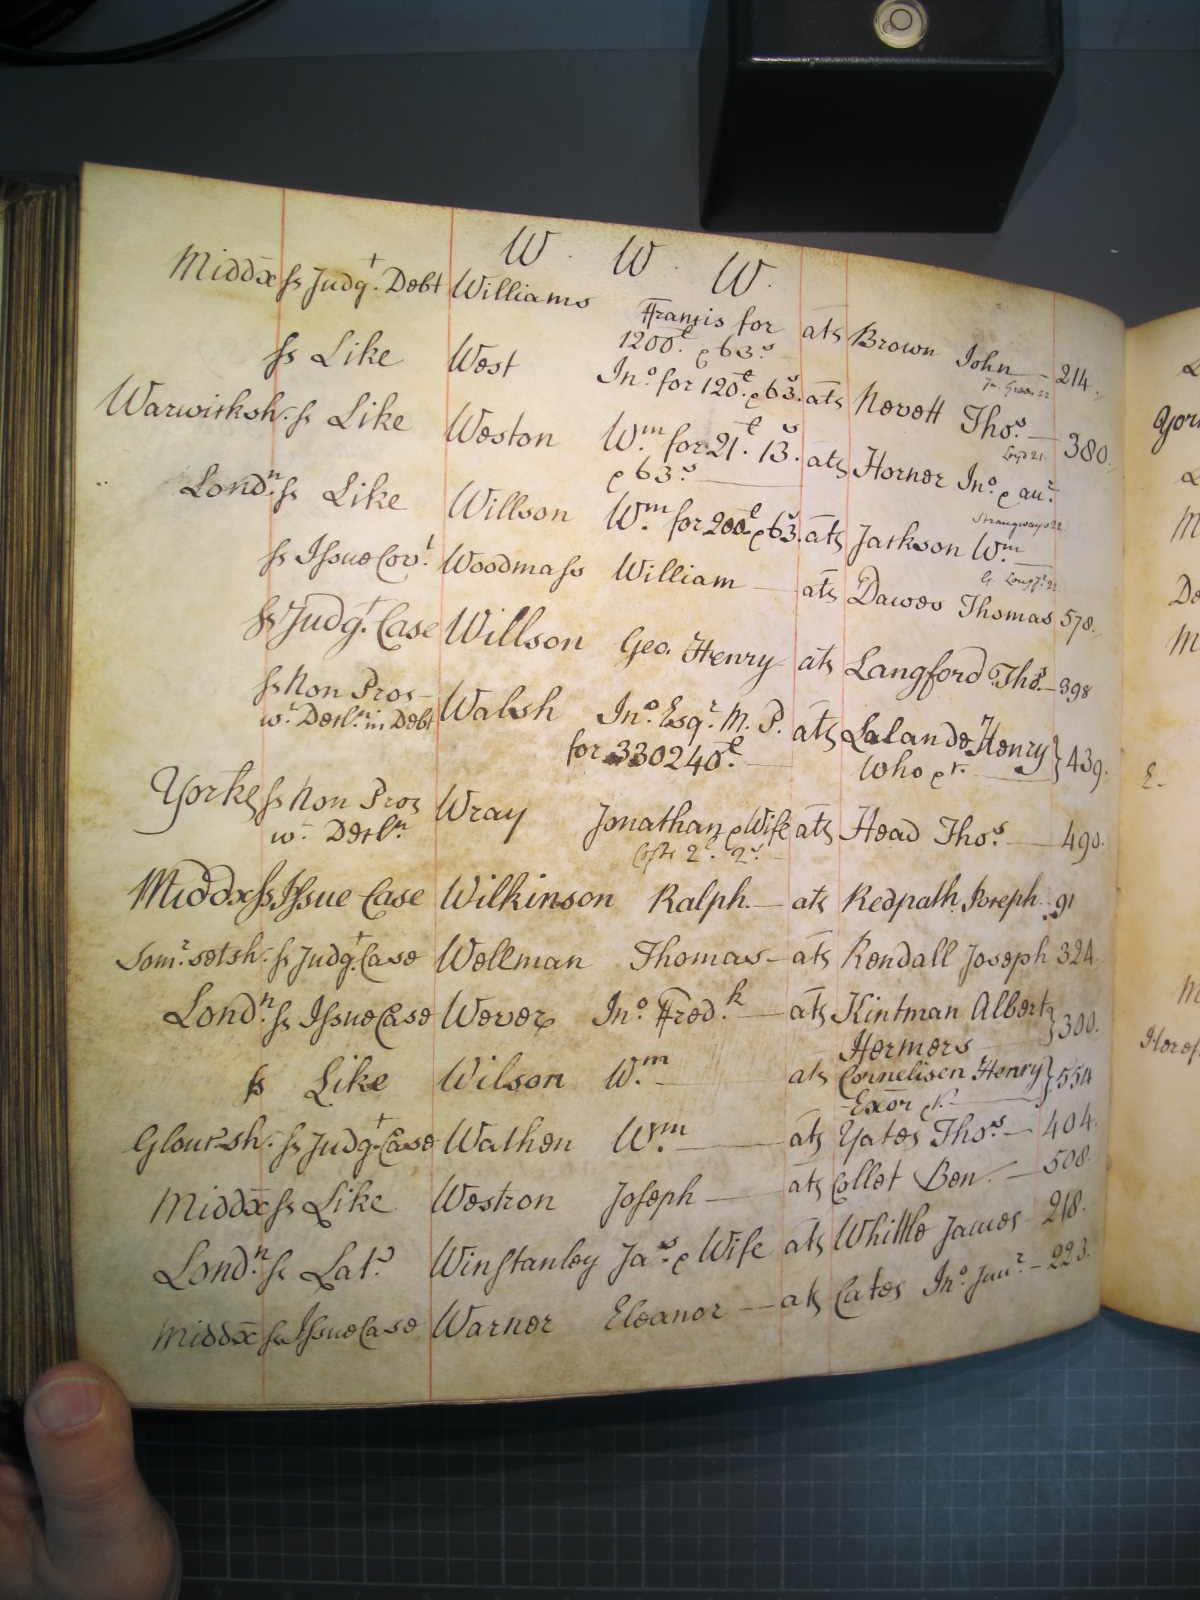 W. W. W.
Middx ss Judgt. Debt Williams Francis for ats Brown John 214.
1200£. & 63s
ss Like West Jno. for 120£. & 63s. ats Nevett Thos. 380.
Warwicksh. ss Like Weston Wm. for 21£. 13s. ats Horner Jno. & aur.
& 63s
Strangways 22
Londn. ss Like Willson Wm. for 200£. & 63s. ats Jackson Wm.
ss Issue Covt. Woodmass William ats Dawes Thomas 578.
ss Judgt. Case Willson Geo. Henry ats Langford Thos. 398
ss Non Pros Walsh Jno. Esqr. M. P. ats Lalande Henry } 439.
wt. Decln. in Debt for 330240£. Who &c.
Yorke ss Non Pros Wray Jonathan & Wife ats Head Thos. 490.
wt. Decln Costs 2£. 2s.
Middx ss Issue Case Wilkinson Ralph. ats Redpath Joseph. 91
Somersetsh. ss Judgt. Case Wellman Thomas ats Kendall Joseph 324.
Londn. ss Issue Case Wever Jno. Fredk. ats Kintman Albert } 300.
Hermers
ss Like Wilson Wm. ats Cornelisen Henry } 554
Exor &c.
Gloucrsh. ss Judgt. Case Wathen Wm. ats Yates Thos. 404.
Middx ss Like Westron Joseph ats Collet Ben. 508.
Londn. ss Lats. Winstanley Jas. & Wife ats Whittle James 218.
Middx ss Issue Case Warner Eleanor ats Cates Jno. Junr. 223.